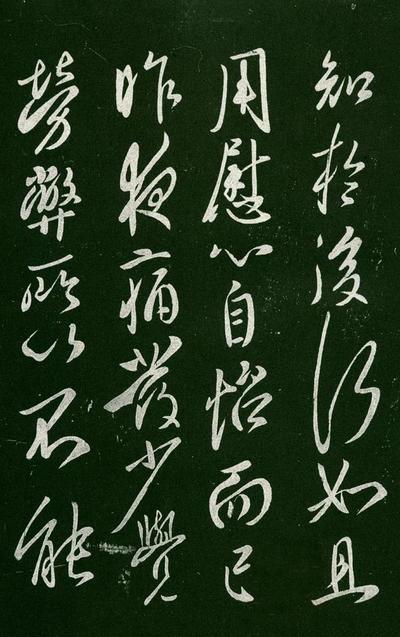 知於後行如且
用慰心自怡而已
昨夜痛發少覺
勞弊所以不能